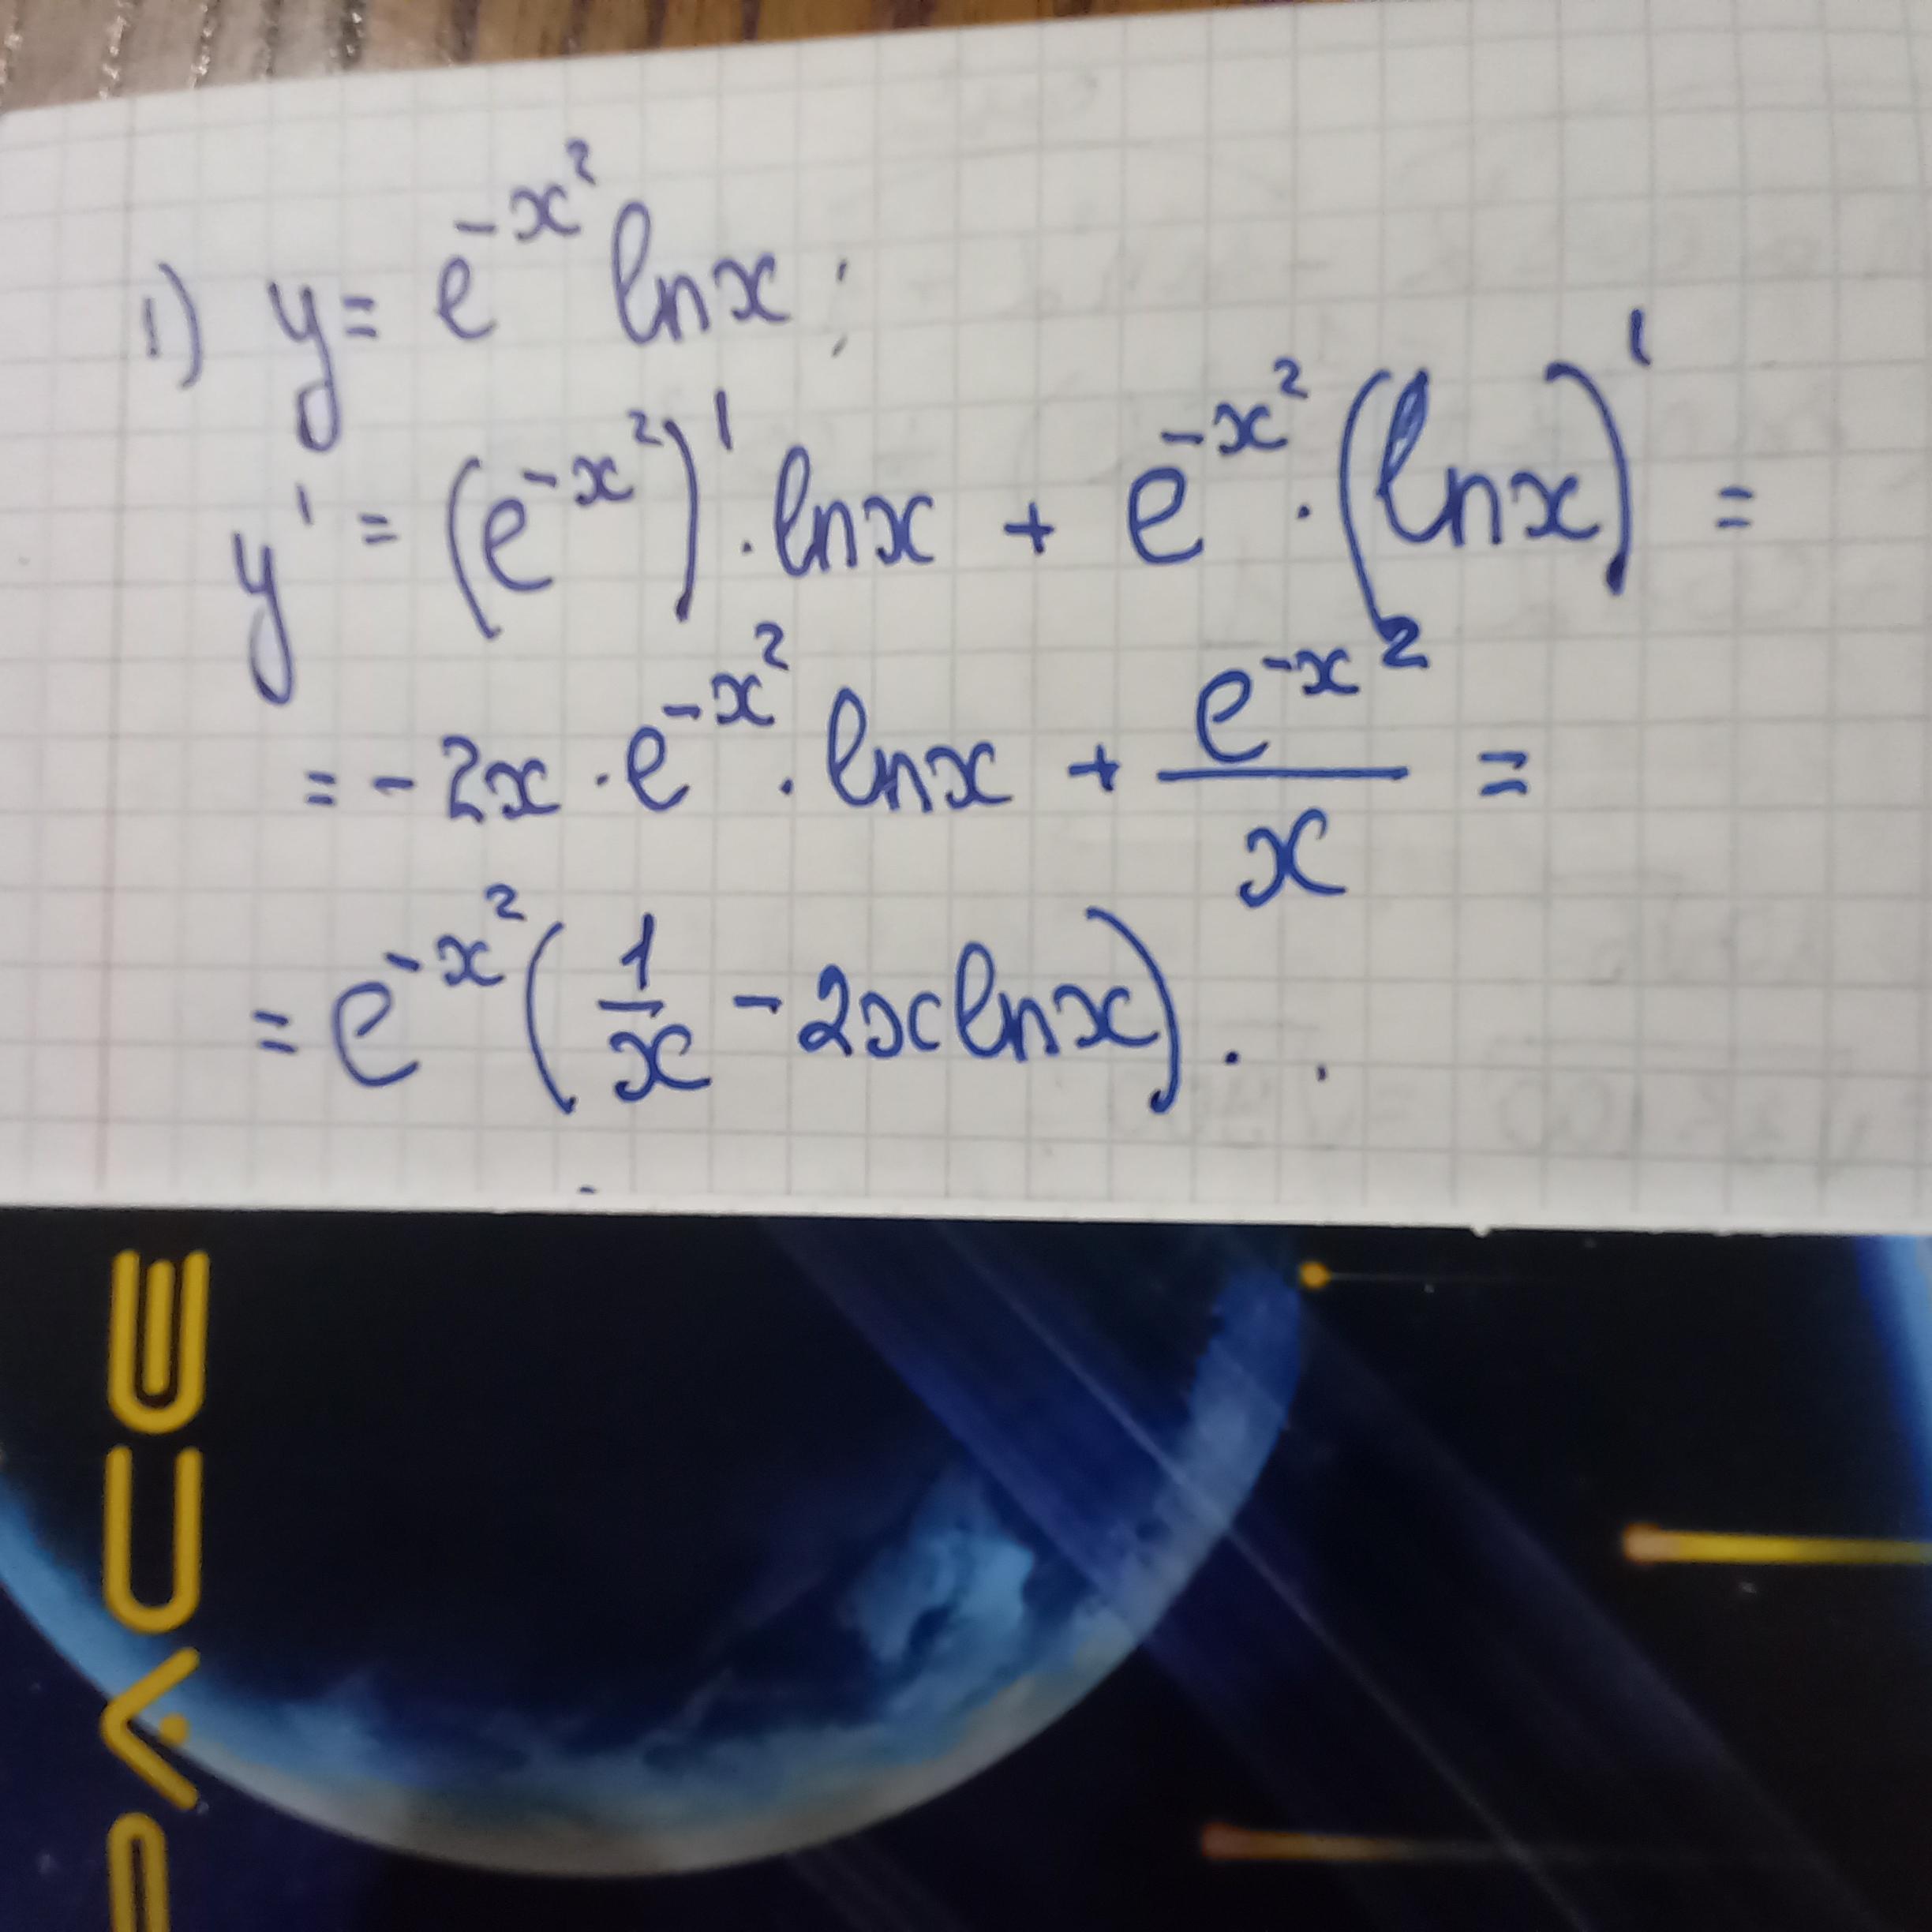 1) y = e^{-x^2} ln x ;
y' = (e^{-x^2})' · ln x + e^{-x^2} · (ln x)' =
= - 2x · e^{-x^2} · ln x + \frac{e^{-x^2}}{x} =
= e^{-x^2} (\frac{1}{x} - 2x ln x) . .